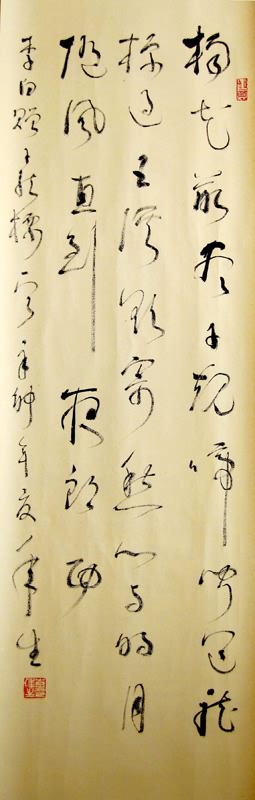 楊花落尽子規啼闻道龙
標过五溪我寄愁心与明月
随风直到夜郎西
李白 王龙標 辛卯年夏 生